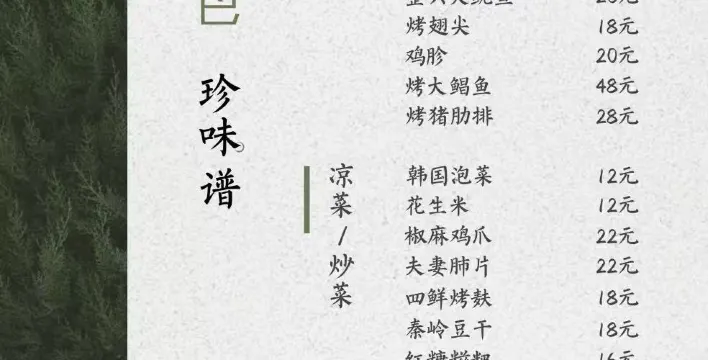 色
珍味谱
烤翅尖 18元
鸡胗 20元
烤大鲳鱼 48元
烤猪肋排 28元
凉菜/炒菜
韩国泡菜 12元
花生米 12元
椒麻鸡爪 22元
夫妻肺片 22元
四鲜烤麸 18元
秦岭豆干 18元
红糖糍粑 16元